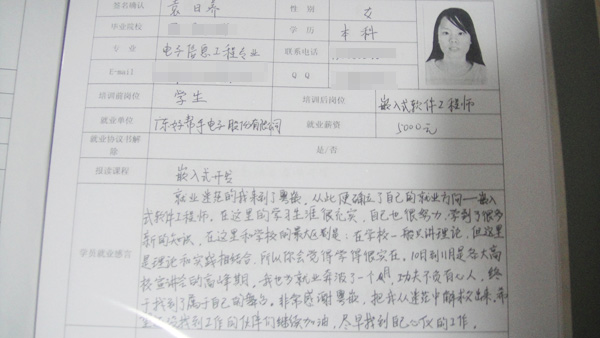 签名确认 袁日春 性 别 女
毕业院校 学 历 本科
专 业 电子信息工程专业 联系电话
E-mail Q Q
培训前岗位 学生 培训后岗位 嵌入式软件工程师
就业单位 广东好帮手电子股份有限公司 就业薪资 5000元
就业协议书解除 是/否
报读课程 嵌入式开发
学员就业感言
就业迷茫的我来到了粤嵌,从此便确立了自己的就业方向——嵌入
式软件工程师,在这里的学习生涯很充实,自己也很努力,学到了很多
新的知识,在这里和学校的最大区别是:在学校一般只讲理论,但这里
是理论和实践相结合,所以你会觉得学得很实在。10月到11月是各大高
校宣讲会的高峰期,我也为就业奔波了一个月,功夫不负有心人,终
于找到了属于自己的舞台。非常感谢粤嵌,把我从迷茫中解救出来,希
找到工作的伙伴们继续加油,尽早找到自己心仪的工作。